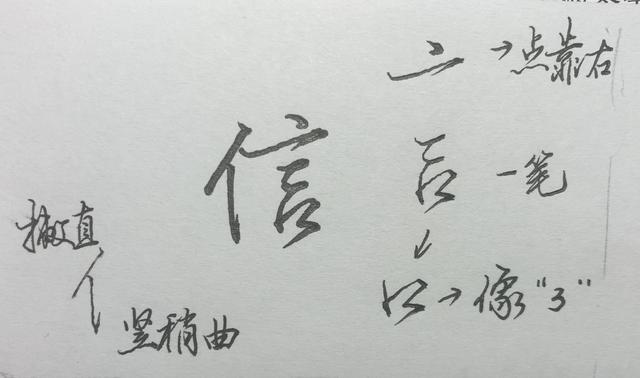 点靠右
信
一笔
撇直
像"3"
竖稍曲